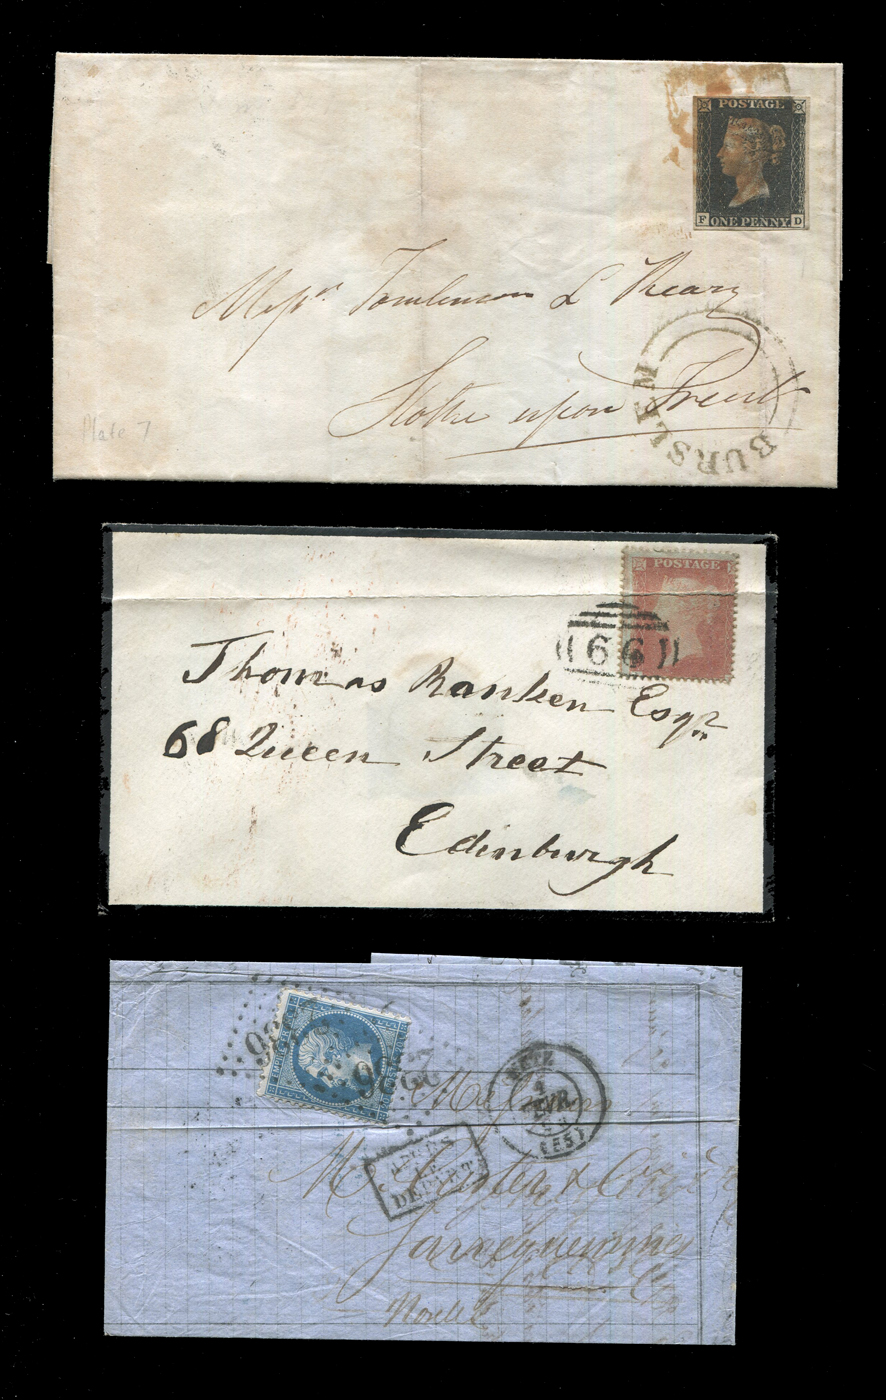 POSTAGE
F ONE PENNY. D
Messrs Tomlinson &
Stoke upon Trent
BURSLEM
Plate 7
POSTAGE
66
Thomas Ranken Esqr
68 Queen Street
Edinburgh
METZ
4
AVR
(55)
APRÈS
LE
DEPART
2236
Sarreguemines
Moselle